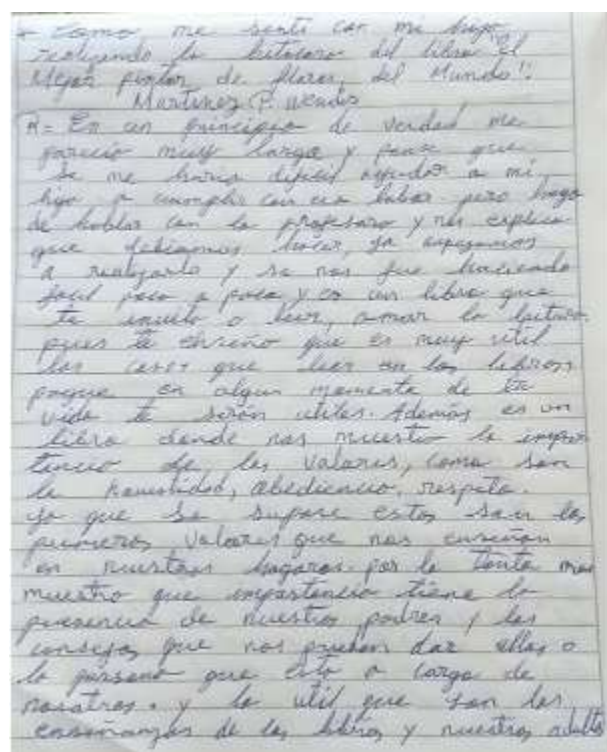 * Como me senti con mi hijo
realizando la lectura del libro "El
Mejor pintor de flores del Mundo".
Martinez P. Wendis
R= En un principio de verdad me
parecio muy largo y pense que
se me haria dificil ayudar a mi
hijo a cumplir con esa labor pero luego
de hablar con la profesora y nos explico
que debiamos hacer, ya empezamos
a realizarlo y se nos fue haciendo
facil poco a poco, y es un libro que
te invita a leer, amar la lectura
pues te enseña que es muy util
las cosas que leer en los libros
porque en algun momento de tu
vida te seran utiles. Ademas es un
libro donde nos muestra la impor
tancia de los valores, como son
la honestidad, obediencia, respeto.
ya que se supone estos son los
primeros valores que nos enseñan
en nuestros hogares. por lo tanto nos
muestra que importancia tiene la
presencia de nuestros padres y los
consejos que nos puedan dar ellos o
la persona que esta a cargo de
nosotros. y lo util que son las
enseñanzas de los libros y nuestros adultos